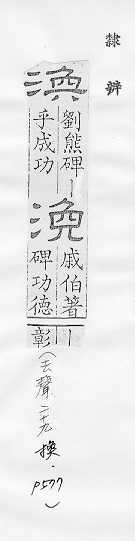 隸辨
渙
劉熊碑丨
乎成功
渙
戚伯著
碑功德
丨
彰
(去聲二十九換.p577)